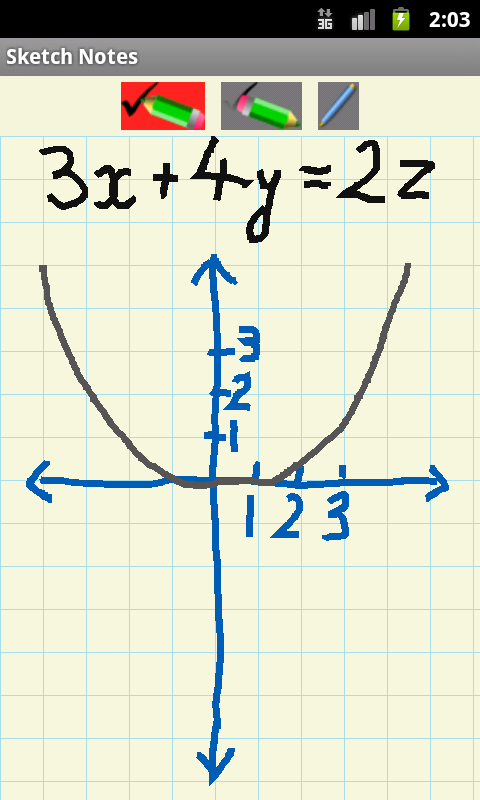 3G 2:03
Sketch Notes
3x+4y=2z
3
2
1
1 2 3